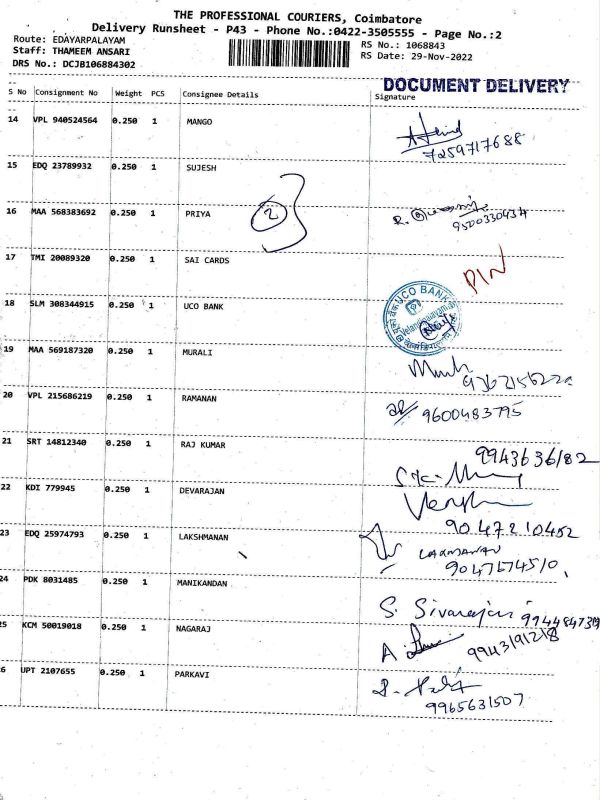 THE PROFESSIONAL COURIERS, Coimbatore
Delivery Runsheet - P43 - Phone No.:0422-3505555 - Page No.:2
Route: EDAYARPALAYAM
RS No.: 1068843
Staff: THAMEEM ANSARI
RS Date: 29-Nov-2022
DRS No.: DCJB106884302
DOCUMENT DELIVERY
S No Consignment No Weight PCS Consignee Details Signature
14 VPL 940524564 0.250 1 MANGO
7259717688
15 EDQ 23789932 0.250 1 SUJESH
16 MAA 568383692 0.250 1 PRIYA 2
9500330434
17 TMI 20089320 0.250 1 SAI CARDS
PIN
18 SLM 308344915 0.250 1 UCO BANK
UCO BANK
19 MAA 569187320 0.250 1 MURALI
20 VPL 215686219 0.250 1 RAMANAN
9600483795
21 SRT 14812340 0.250 1 RAJ KUMAR
9943636182
22 KDI 779945 0.250 1 DEVARAJAN
9047210452
23 EDQ 25974793 0.250 1 LAKSHMANAN
LAXMANAN
24 PDK 8031485 0.250 1 MANIKANDAN
S. Sivarajan
25 KCM 50019018 0.250 1 NAGARAJ
9943191218
26 UPT 2107655 0.250 1 PARKAVI
9965631507